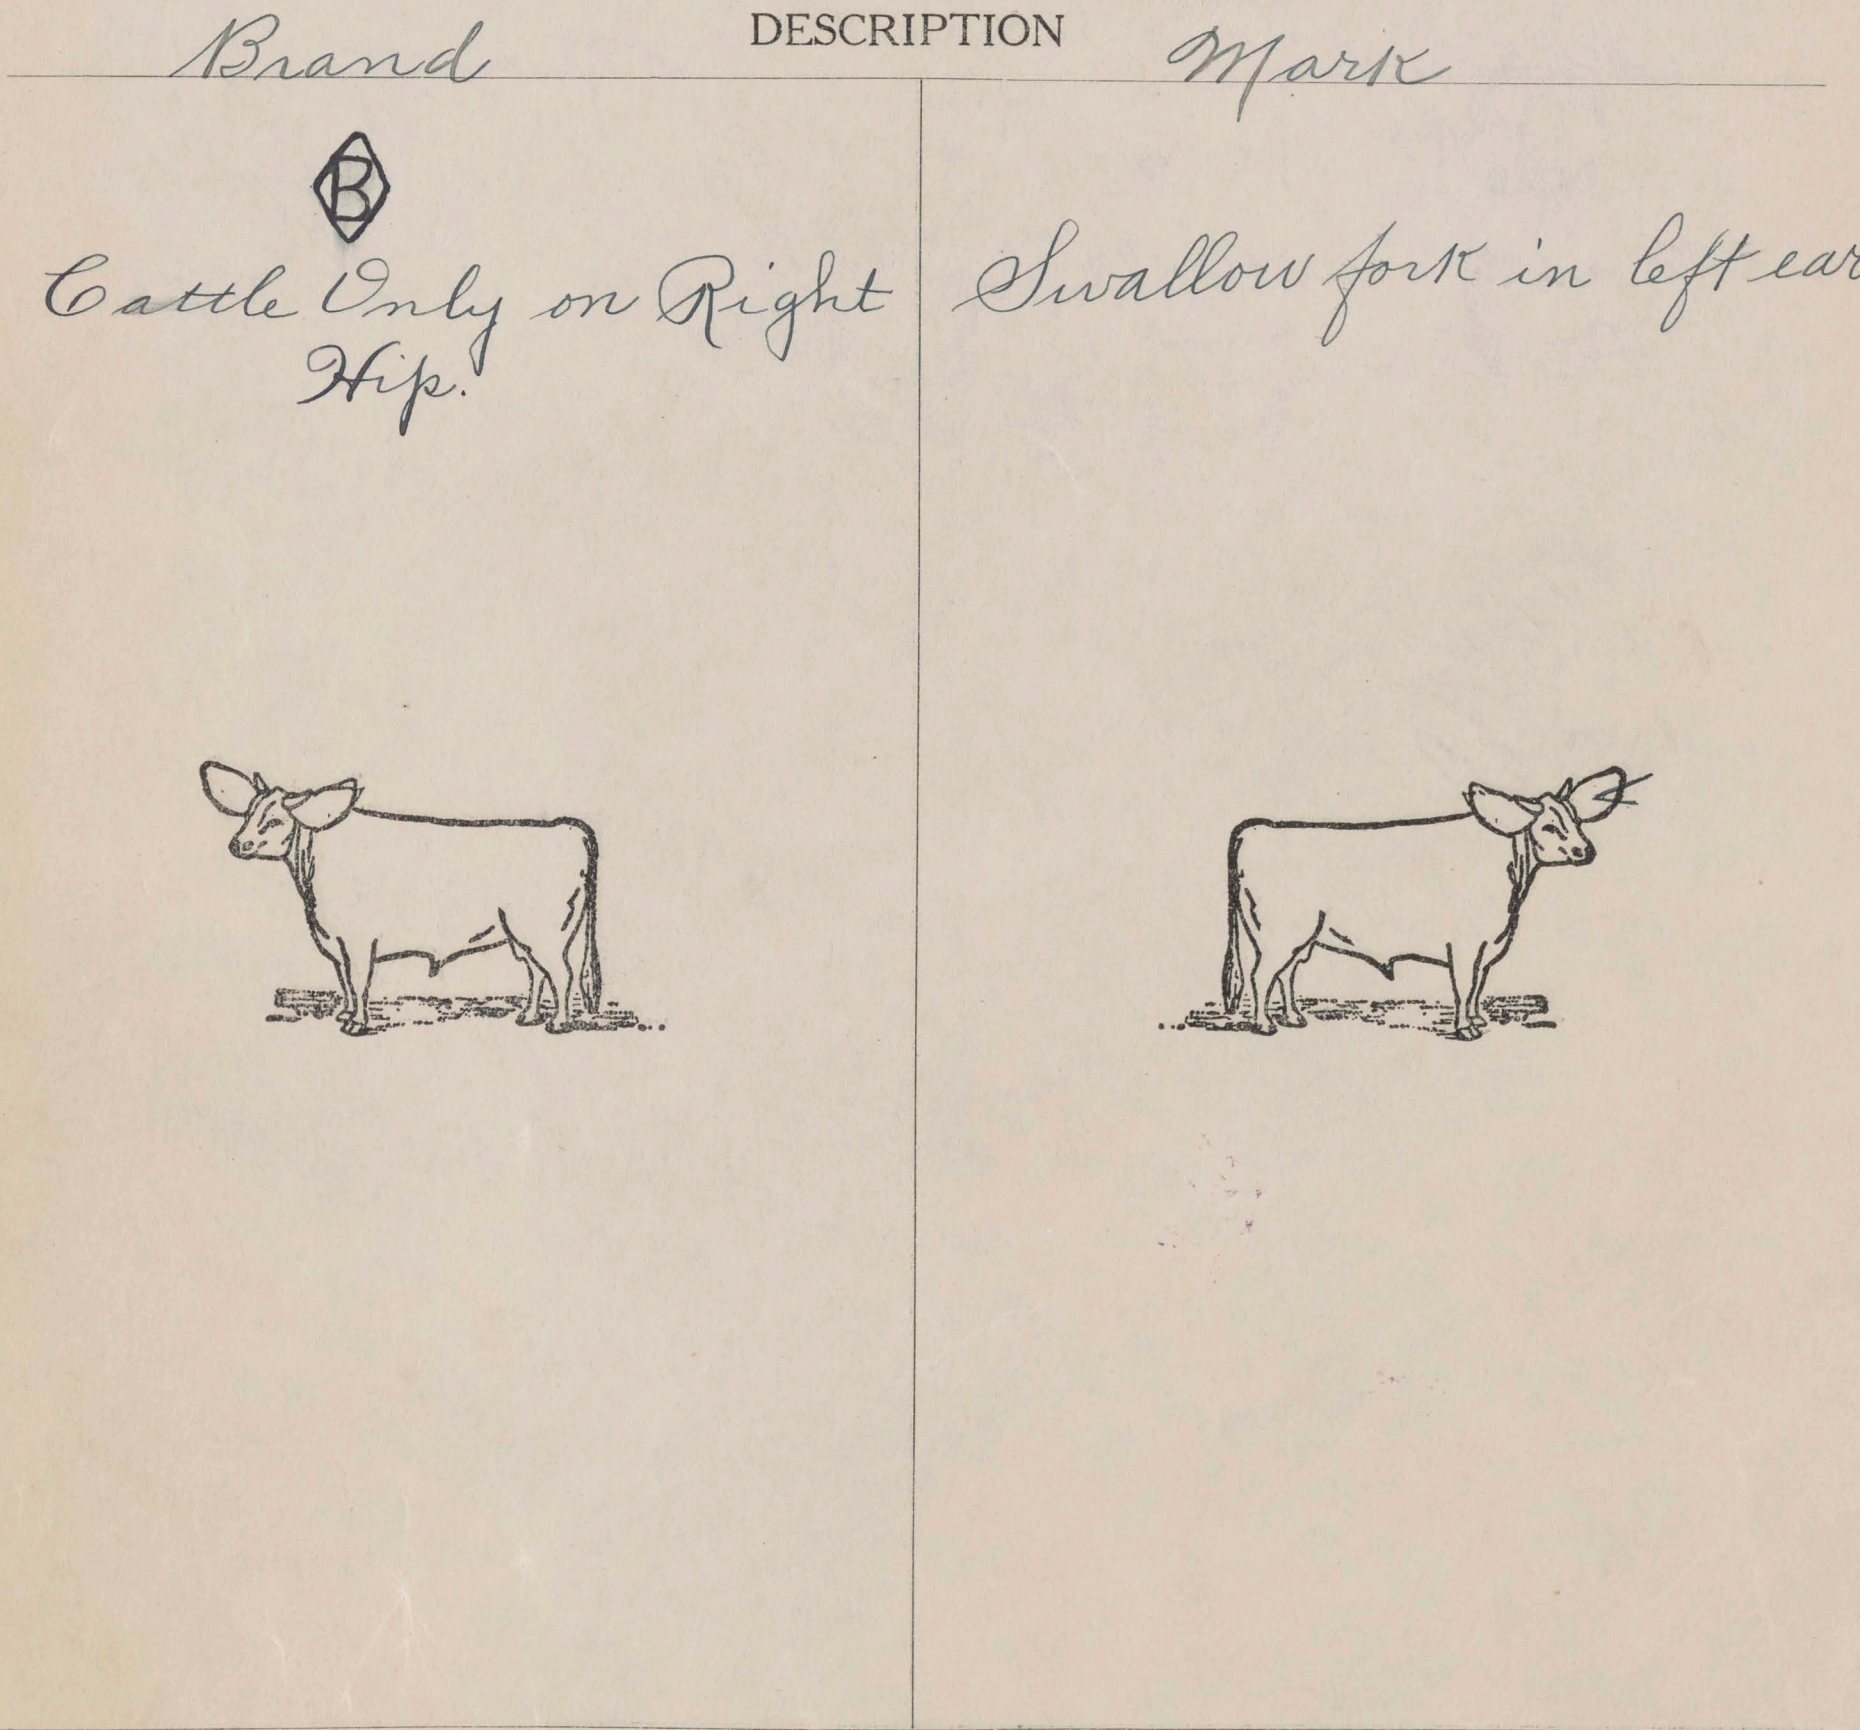 DESCRIPTION
Brand
Mark
B
Cattle Only on Right
Hip.
Swallow fork in left ear